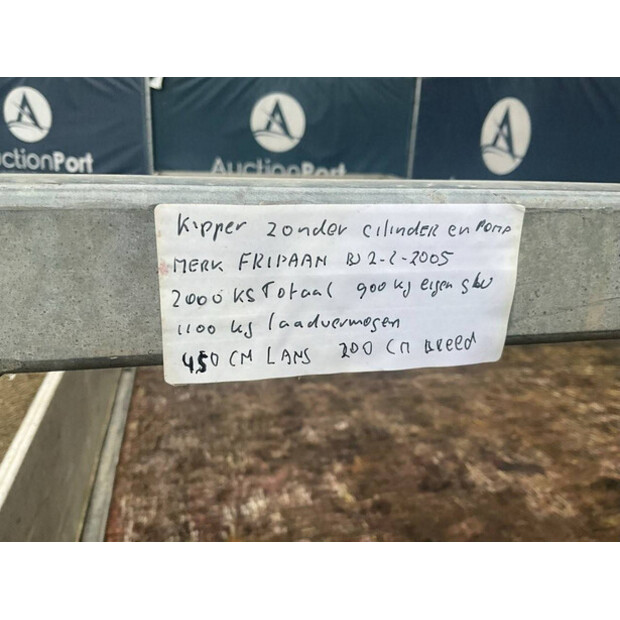 uctionPort
AuctionPort
Kipper zonder cilinder en Pomp
MERK FRIPAAN BJ 2-2-2005
2000 KG Totaal 900 kg eigen gew
1100 kg laadvermogen
450 CM LANG 200 CM Breed